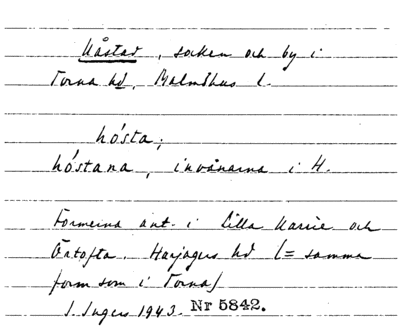 Håstad, socken och by i
Torna hd, Malmöhus l.
hósta;
hóstana, invånarna i H.
Formerna ant. i Lilla Harrie och
Örtofta. Harjagers hd (= samma
form som i Torna)
I. Ingers 1943. Nr 5842.